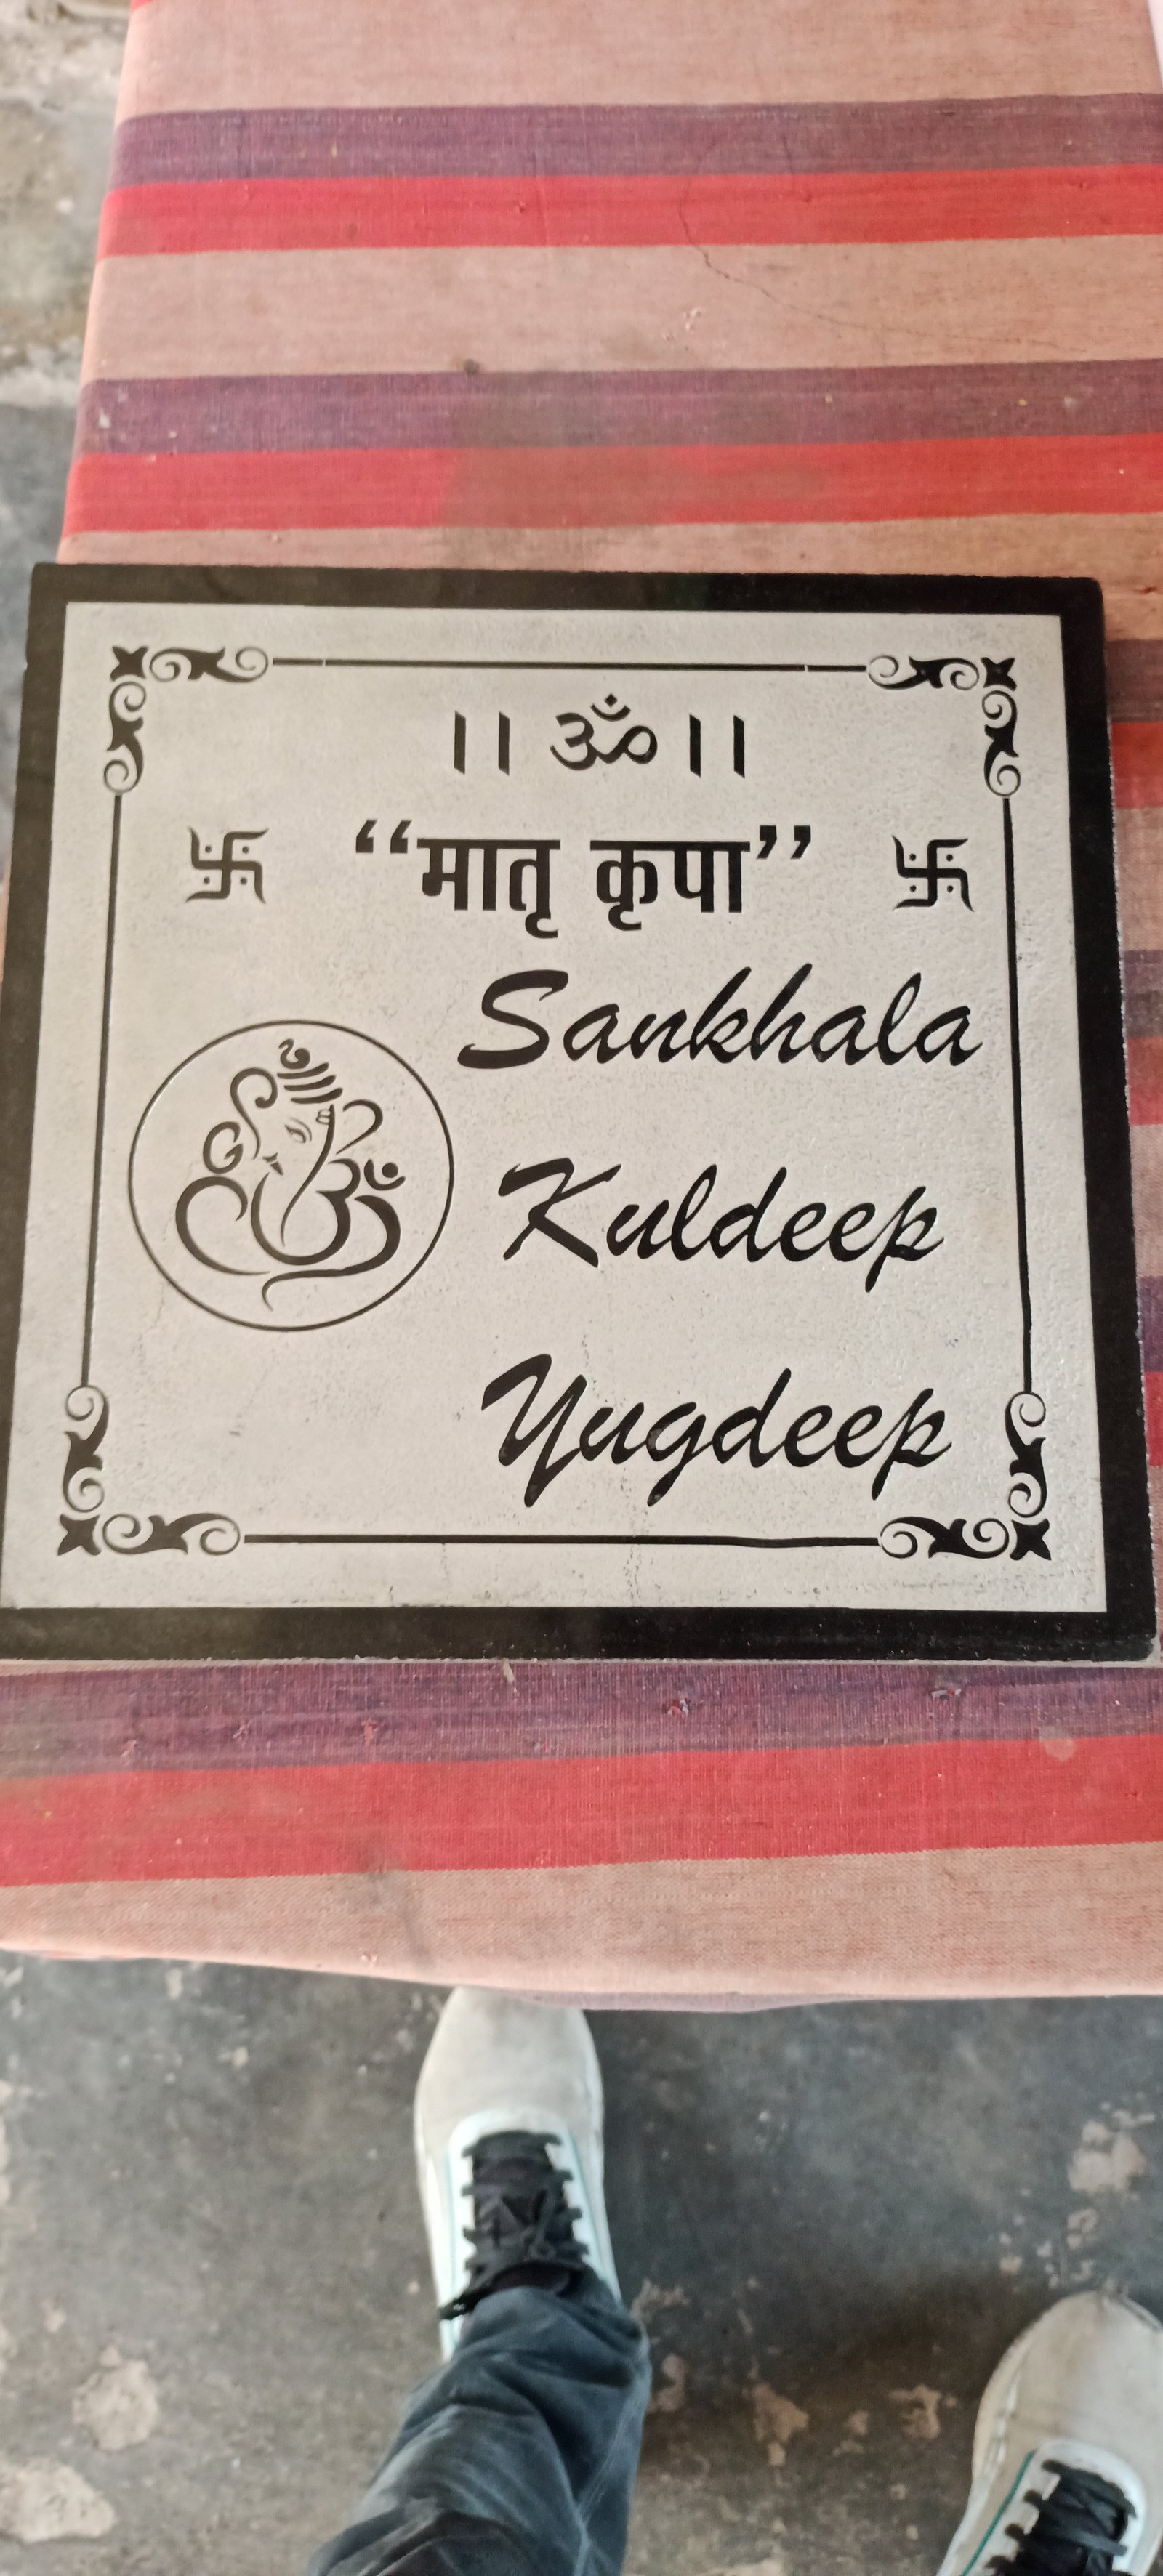 ।। ॐ ।।
“मातृ कृपा”
Sankhala
Kuldeep
Yugdeep